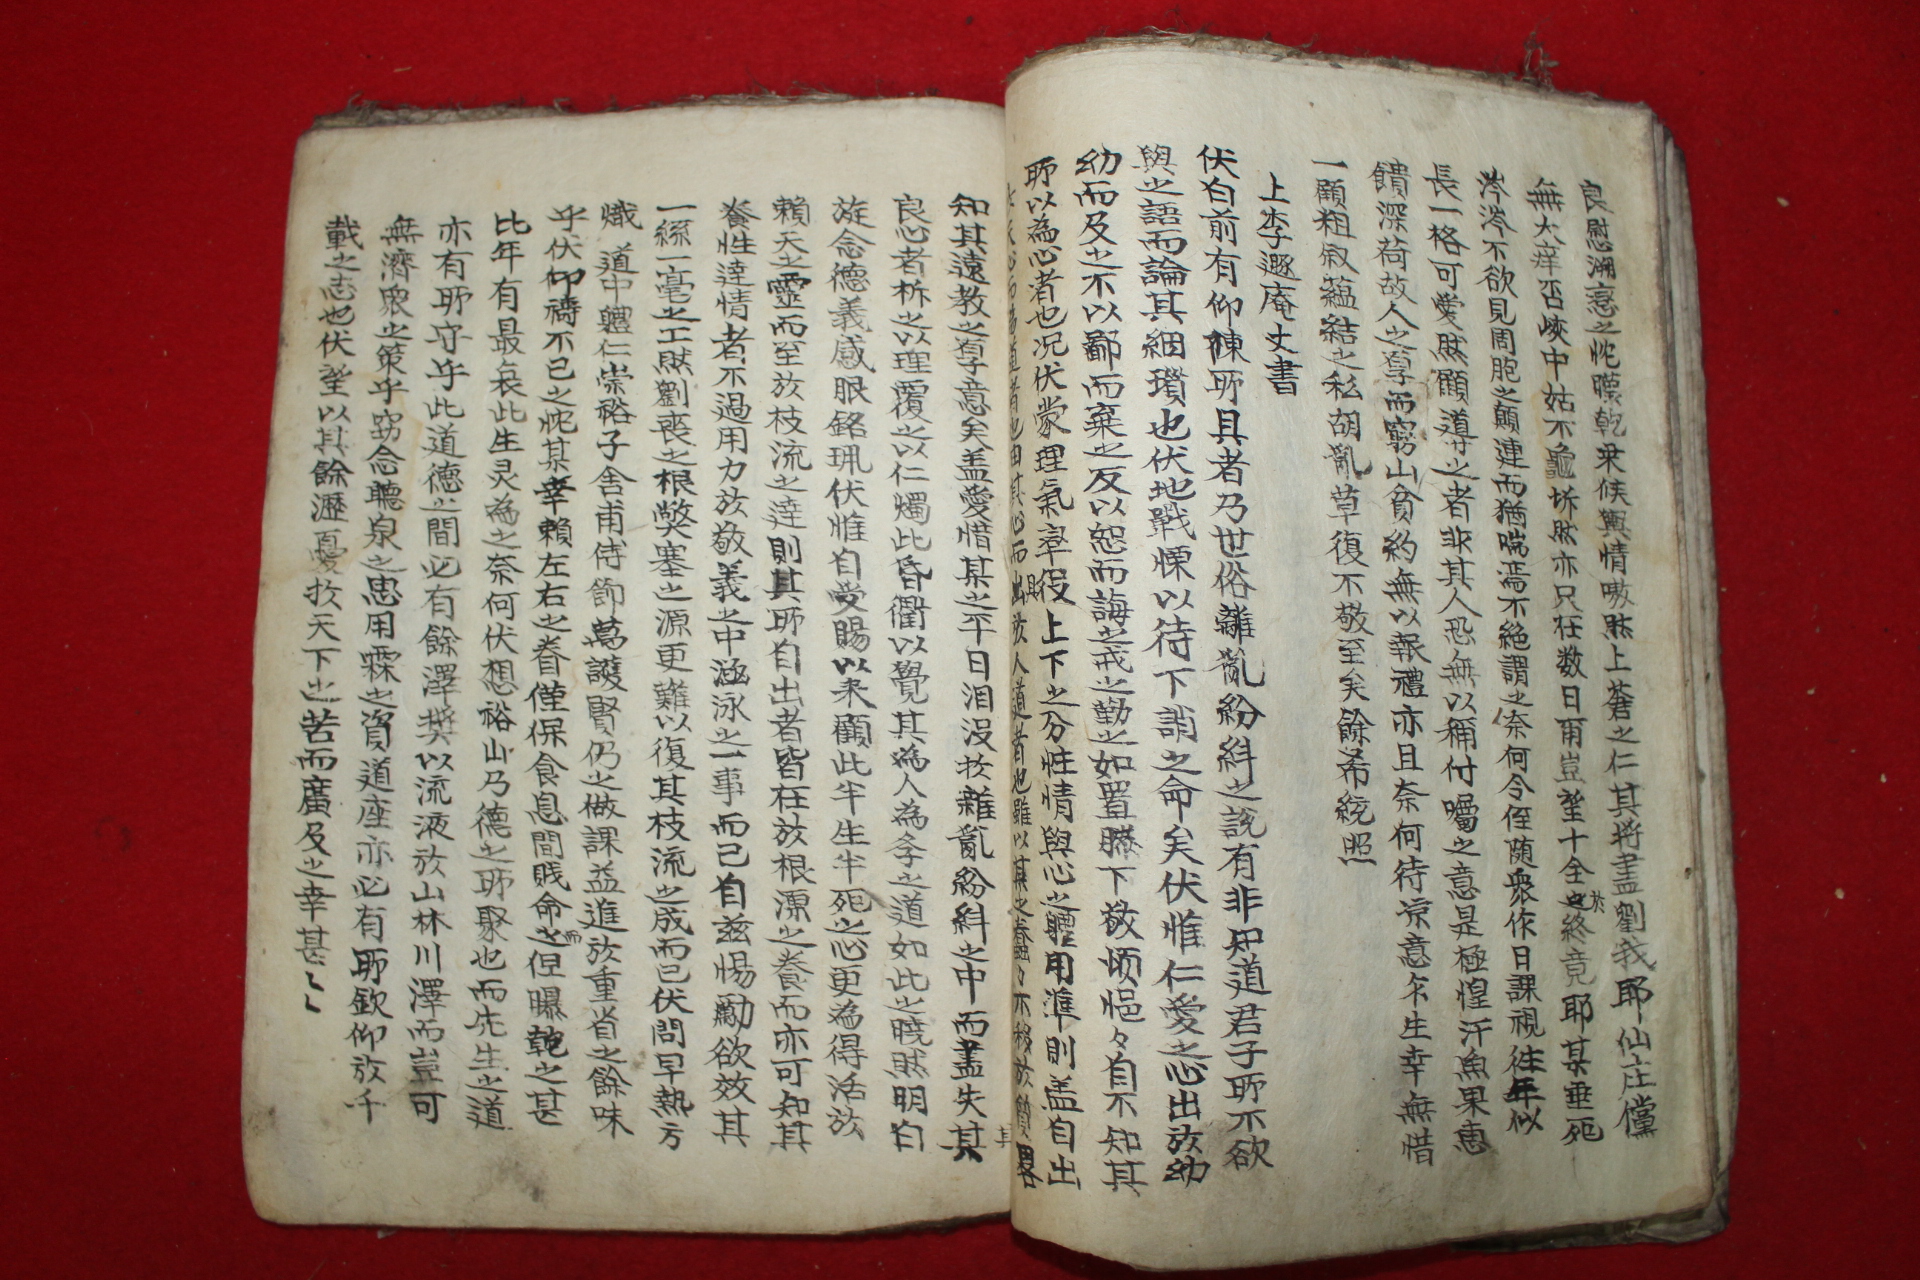 良慰溯意之忱暵乾来候輿情嗷然上蒼之仁其將盡劉我耶仙庄儻
無大痒否峽中姑不龜坼然亦只在数日爾豈望十全於終竟耶某垂死
涔涔不欲見同胞之顛連而猶喘焉不絶謂之奈何令侄随衆作日課視往年似
長一格可愛然顧導之者非其人恐無以稱付囑之意是極惶汗魚果惠
饋深荷故人之厚而窮山貧約無以報禮亦且奈何待凉意尓生幸無惜
一顧粗叙蘊結之私胡亂草復不敬至矣餘希統照
上李遯庵丈書
伏白前有仰棟所具者乃世俗雜亂紛糾之説有非知道君子所不欲
與之語而論其細瑣也伏地戰慄以待下誚之命矣伏惟仁愛之心出於幼
幼而及之不以鄙而棄之反以恕而誨之戒之勤之如置膝下敬煩悒々自不知其
所以為心者也况伏蒙理氣率役上下之分性情與心之體用準則盖自出
知其遠教之厚意矣盖愛惜某之平日泪没於雜亂紛糾之中而盡失其
良心者析之以理覆之以仁燭此昏衢以覺其為人為學之道如此之曉然明白
旋念德義感服銘珮伏惟自受賜以来顧此半生半死之心更為得活於
賴天之靈而至於枝流之達則其所自出者皆在於根源之養而亦可知其
養性達情者不過用力於敬義之中涵泳之一事而已自兹惕勵欲效其
一絲一毫之工然劉喪之根獘塞之源更難以復其枝流之成而已伏問旱熱方
熾 道中體仁崇裕子舍甫侍節萬護賢仍之做課益進於重省之餘味
乎伏仰禱不已之忱某幸賴左右之眷僅保食息間賤命而但曝乾之甚
比年有最哀此生灵為之奈何伏想裕山乃德之所聚也而先生之道
亦有所守乎此道德之間必有餘澤獎以流液於山林川澤而豈可
無濟衆之策乎窃念聽泉之思用霖之資道座亦必有所欽仰於千
載之志也伏望以其餘瀝憂於天下之苦而廣及之幸甚〻〻